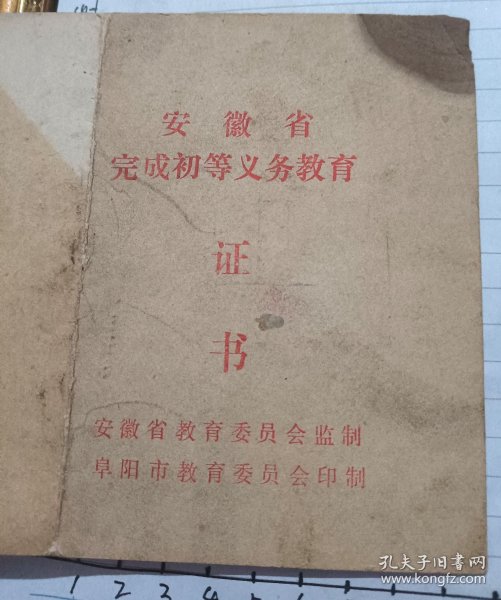 安徽省
完成初等义务教育
证
书
安徽省教育委员会监制
阜阳市教育委员会印制
孔夫子旧书网
www.kongfz.com
1 2 3 4